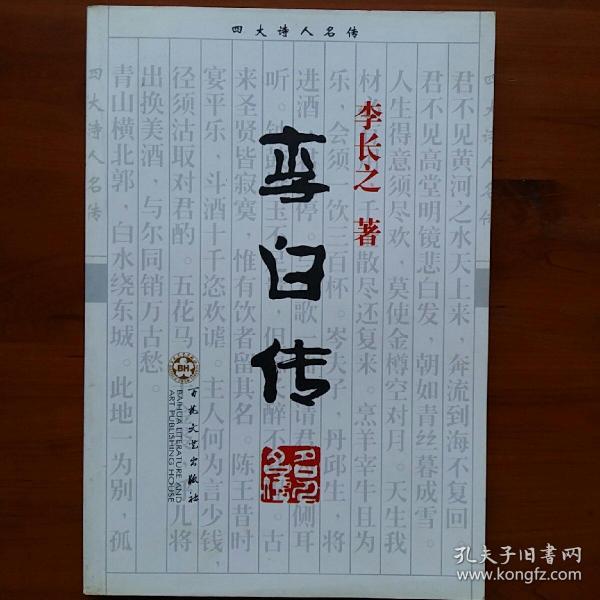 四大诗人名传
李白传
李长之 著
四大诗人名传
君不见黄河之水天上来 奔流到海不复回。
君不见高堂明镜悲白发，朝如青丝暮成雪。
人生得意须尽欢，莫使金樽空对月。天生我
散尽还复来。烹羊宰牛且为
乐，会须一饮三百杯。岑夫子 丹邱生，将
进酒
侧耳
听。
醉不
古
来圣贤皆寂寞，惟有饮者留其名。陈王昔时
宴平乐，斗酒十千恣欢谑。主人何为言少钱，
径须沽取对君酌。五花马
儿将
出换美酒，与尔同销万古愁。
青山横北郭，白水绕东城。此地一为别，孤
四大诗人名传
BH
百花文艺出版社
BAIHUA LITERATURE AND
ART PUBLISHING HOUSE
孔夫子旧书网
www.kongfz.com